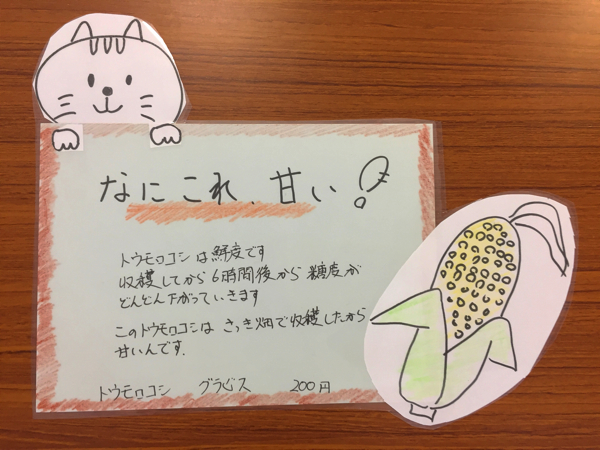 なにこれ、甘い!
トウモロコシは鮮度です
収穫してから6時間後から糖度が
どんどん下がっていきます
このトウモロコシは さっき畑で収穫したから
甘いんです。
トウモロコシ グラビス 200円